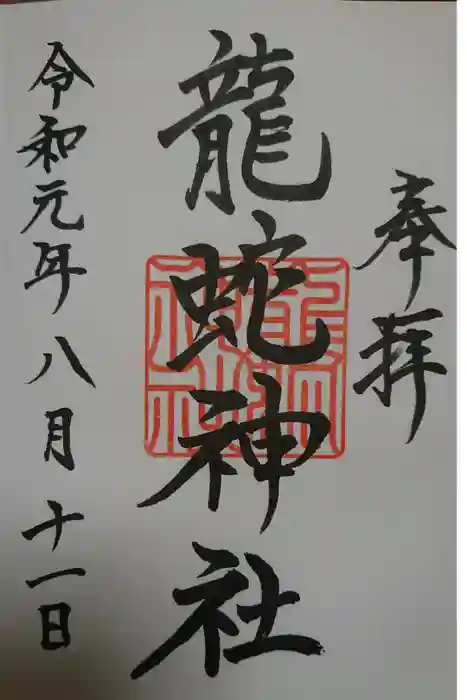 奉拝
龍蛇神社
令和元年八月十一日